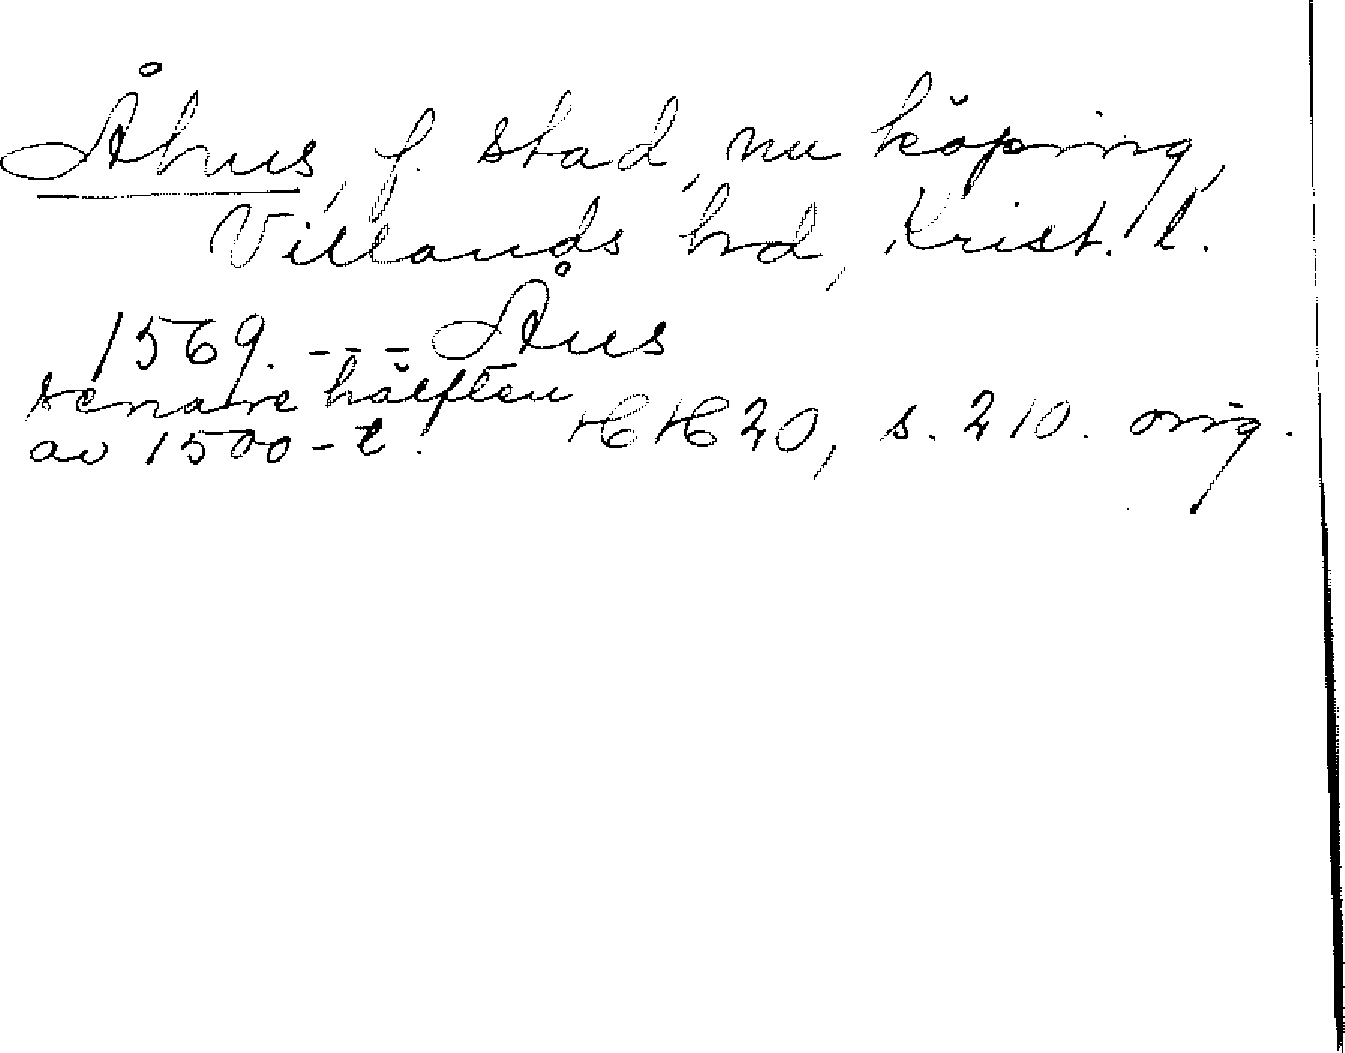 Åhus, f. stad, nu köping,
Villands hd, Krist. l.
1569. --- Åus
senare hälften
av 1500-t. HH 20, s. 210. orig.